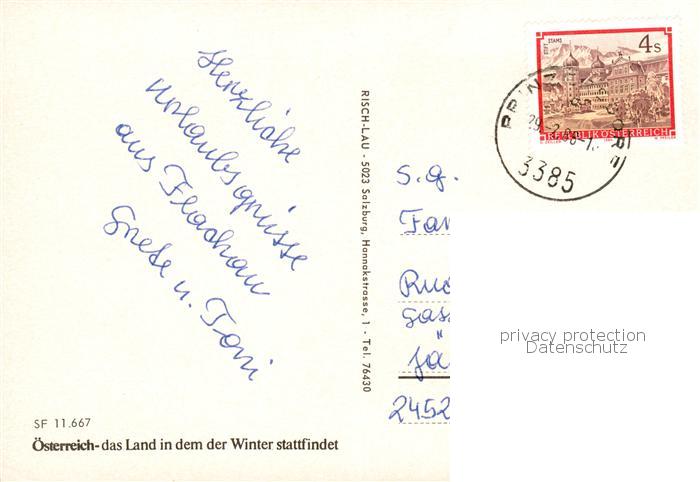 Herzliche
Urlaubsgrüsse
aus Flachau
Grete u. Toni
SF 11.667
Österreich-das Land in dem der Winter stattfindet
RISCH-LAU - 5023 Salzburg, Hannakstrasse, 1 - Tel. 76430
STIFT STAMS
4s
REPUBLIK ÖSTERREICH
3385
S.g.
Fam
2452
privacy protection
Datenschutz